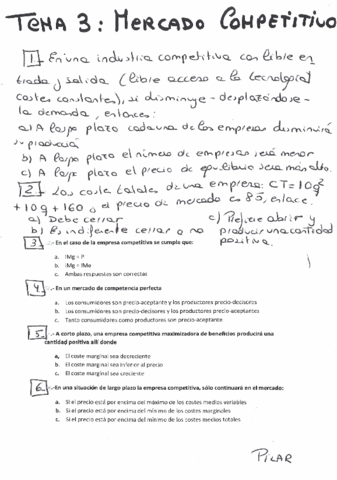 TEMA 3: MERCADO COMPETITIVO
1 En una industria competitiva con libre en
trada y salida (libre acceso a la tecnología
costes constantes), si disminuye - desplazándose -
la demanda, entonces:
a) A largo plazo cada una de las empresas disminuirá
su producción
b) A largo plazo el número de empresas será menor
c) A largo plazo el precio de equilibrio será más alto.
2 Los coste totales de una empresa: CT=10q²
+10q+160 el precio de mercado es 85,
a) Debe cerrar
c) Prefiere abrir y
b) Es indiferente cerrar o no
producir una cantidad
positiva.
3 .- En el caso de la empresa competitiva se cumple que:
a. IMg = P
b. IMg = IMe
c. Ambas respuestas son correctas
4 .- En un mercado de competencia perfecta
a. Los consumidores son precio-aceptante y los productores precio-decisores
b. Los consumidores son precio-decisores y los productores precio-aceptantes
c. Tanto consumidores como productores son precio-aceptante
5 .- A corto plazo, una empresa competitiva maximizadora de beneficios producirá una
cantidad positiva allí donde
a. El coste marginal sea decreciente
b. El coste marginal sea inferior al precio
c. El coste marginal sea creciente
6 .- En una situación de largo plazo la empresa competitiva, sólo continuará en el mercado:
a. Si el precio está por encima del máximo de los costes medios variables
b. Si el precio está por encima del mínimo de los costes marginales
c. Si el precio está por encima del mínimo de los costes medios totales
PILAR